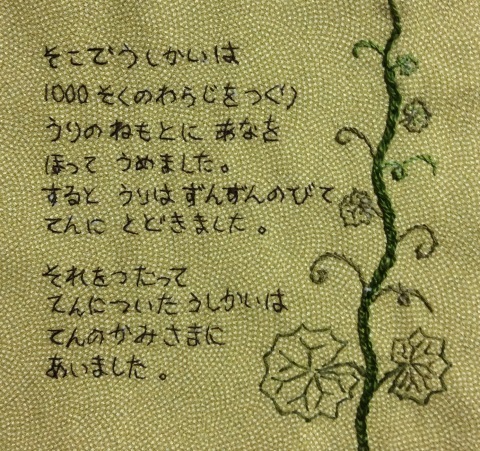 そこでうしかいは
1000そくのわらじをつくり
うりのねもとに あなを
ほって うめました。
すると うりは ずんずんのびて
てんに とどきました。
それをつたって
てんについた うしかいは
てんのかみさまに
あいました。